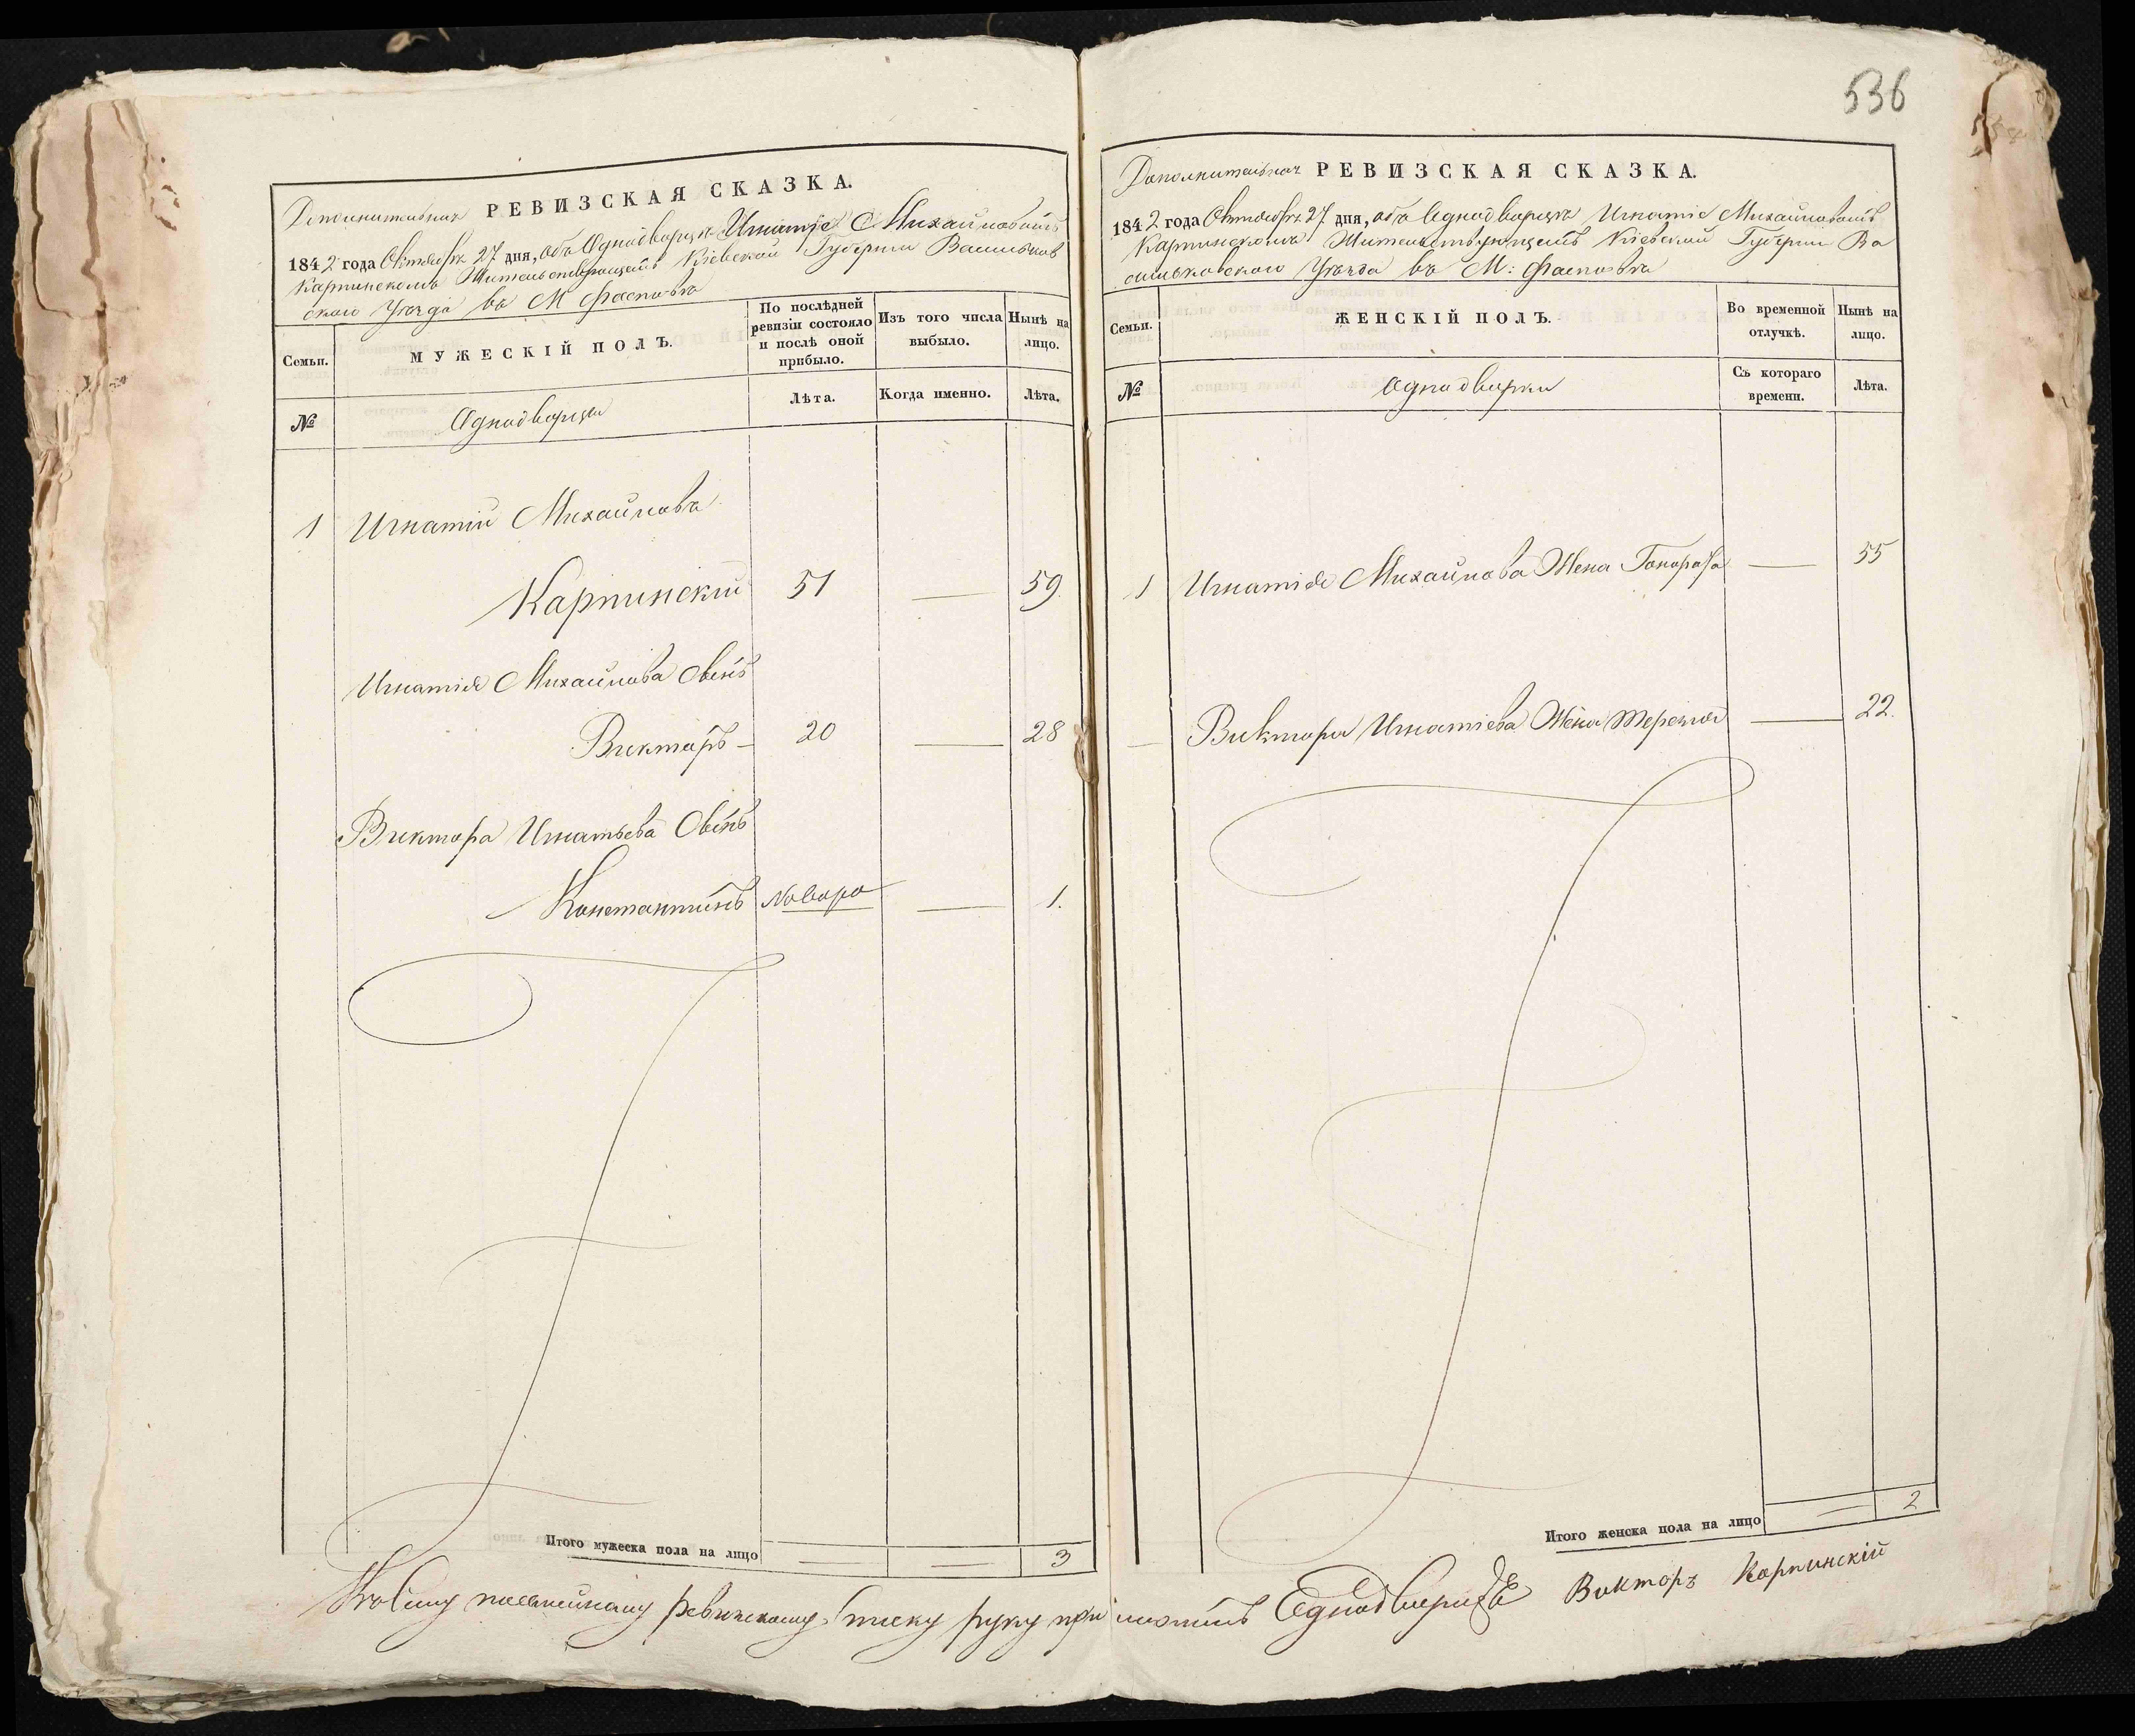 536
Дополнительная РЕВИЗСКАЯ СКАЗКА.
1842 года Октября 27 дня, объ Однодворцѣ Игнатіе Михайловомъ
Карпинскомъ Жительствующемъ Кіевской Губерніи Васильков
скаго Уѣзда въ М Фастовѣ
Семьи.
МУЖЕСКІЙ ПОЛЪ.
По послѣдней ревизіи состояло и послѣ оной прибыло.
Изъ того числа выбыло.
Нынѣ на лицо.
№
Однодворцы
Лѣта.
Когда именно.
Лѣта.
1 Игнатій Михайловъ
Карпинскій 51 — 59.
Игнатія Михайлова Сынъ
Викторъ — 20 — 28
Виктора Игнатьева Сынъ
Константинъ новоро — 1.
Итого мужеска пола на лицо 3
Дополнительная РЕВИЗСКАЯ СКАЗКА.
1842 года Октября 27 дня, объ Однодворцѣ Игнатіе Михайловомъ
Карпинскомъ Жительствующемъ Кіевской Губерніи Ва
сильковскаго Уѣзда въ М: Фастовѣ
Семьи.
ЖЕНСКІЙ ПОЛЪ.
Во временной отлучкѣ.
Нынѣ на лицо.
№
Однодворки
Съ котораго времени.
Лѣта.
1 Игнатія Михайлова Жена Гонората — 55
— Виктора Игнатіева Жена Терезія — 22.
Итого женска пола на лицо 2
ревизскому списку руку приложилъ Однодворецъ Викторъ Карпинскій